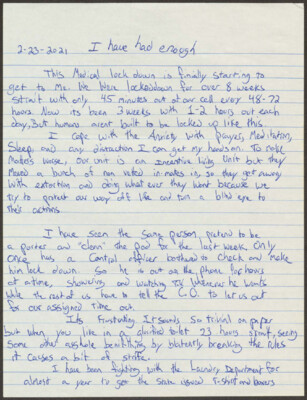 2-23-2021 I have had enough
This Medical lock down is finially starting to
get to me. We Were lockeddown for over 8 weeks
straight with only 45 minutes out of our cell every 48-72
hours. Now its been 3 weeks with 1-2 hours out each
day. But humans arent built to be locked up like this.
I Cope with the Anxiety with prayer, Meditation,
Sleep and any distraction I can get my hands on. To make
Matters worse, our unit is an incentive living Unit but they
Moved a bunch of non voted in inmates in, so they get away
With extortion and doing what ever they want because we
try to protect our way of life and turn a blind eye to
their actions.
I have seen the same person pretend to be
a porter and "clean" the pod for the last week. Only
once has a Control officer bothered to check and make
him lock down. So he is out on the phone for hours
at a time, showering, and watching TV whenever he wants
while the rest of us have to tell the C.O. to let us out
for our assigned time out.
Its frustrating. It sounds so trivial on paper
but when you live in a glorified toilet 23 hours straight, seeing
some other asshole benifitting by blatantly breaking the rules
it causes a bit of strife.
I have been fighting with the laundry department for
almost a year to get the state issued T-shirts and boxers